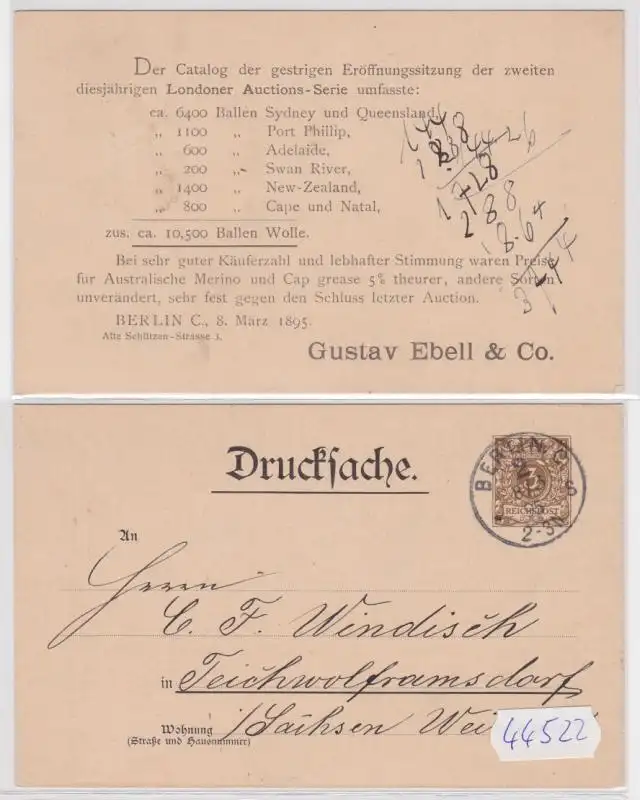 Der Catalog der gestrigen Eröffnungssitzung der zweiten
diesjährigen Londoner Auctions-Serie umfasste:
ca. 6400 Ballen Sydney und Queensland,
„ 1100 „ Port Phillip,
„ 600 „ Adelaide,
„ 200 „ Swan River,
„ 1400 „ New-Zealand,
„ 800 „ Cape und Natal,
zus. ca. 10,500 Ballen Wolle.
Bei sehr guter Käuferzahl und lebhafter Stimmung waren Preise
für Australische Merino und Cap grease 5% theurer, andere Sorten
unverändert, sehr fest gegen den Schluss letzter Auction.
BERLIN C., 8. März 1895.
Alte Schützen-Strasse 3.
Gustav Ebell & Co.
Drucksache.
BERLIN C
REICHSPOST
2-3N
An
Herrn
C. F. Windisch
in Teichwolframsdorf
Wohnung
(Straße und Hausnummer)
/Sachsen
44522